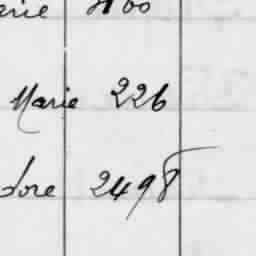 erie 400
Marie 226
dore 2498